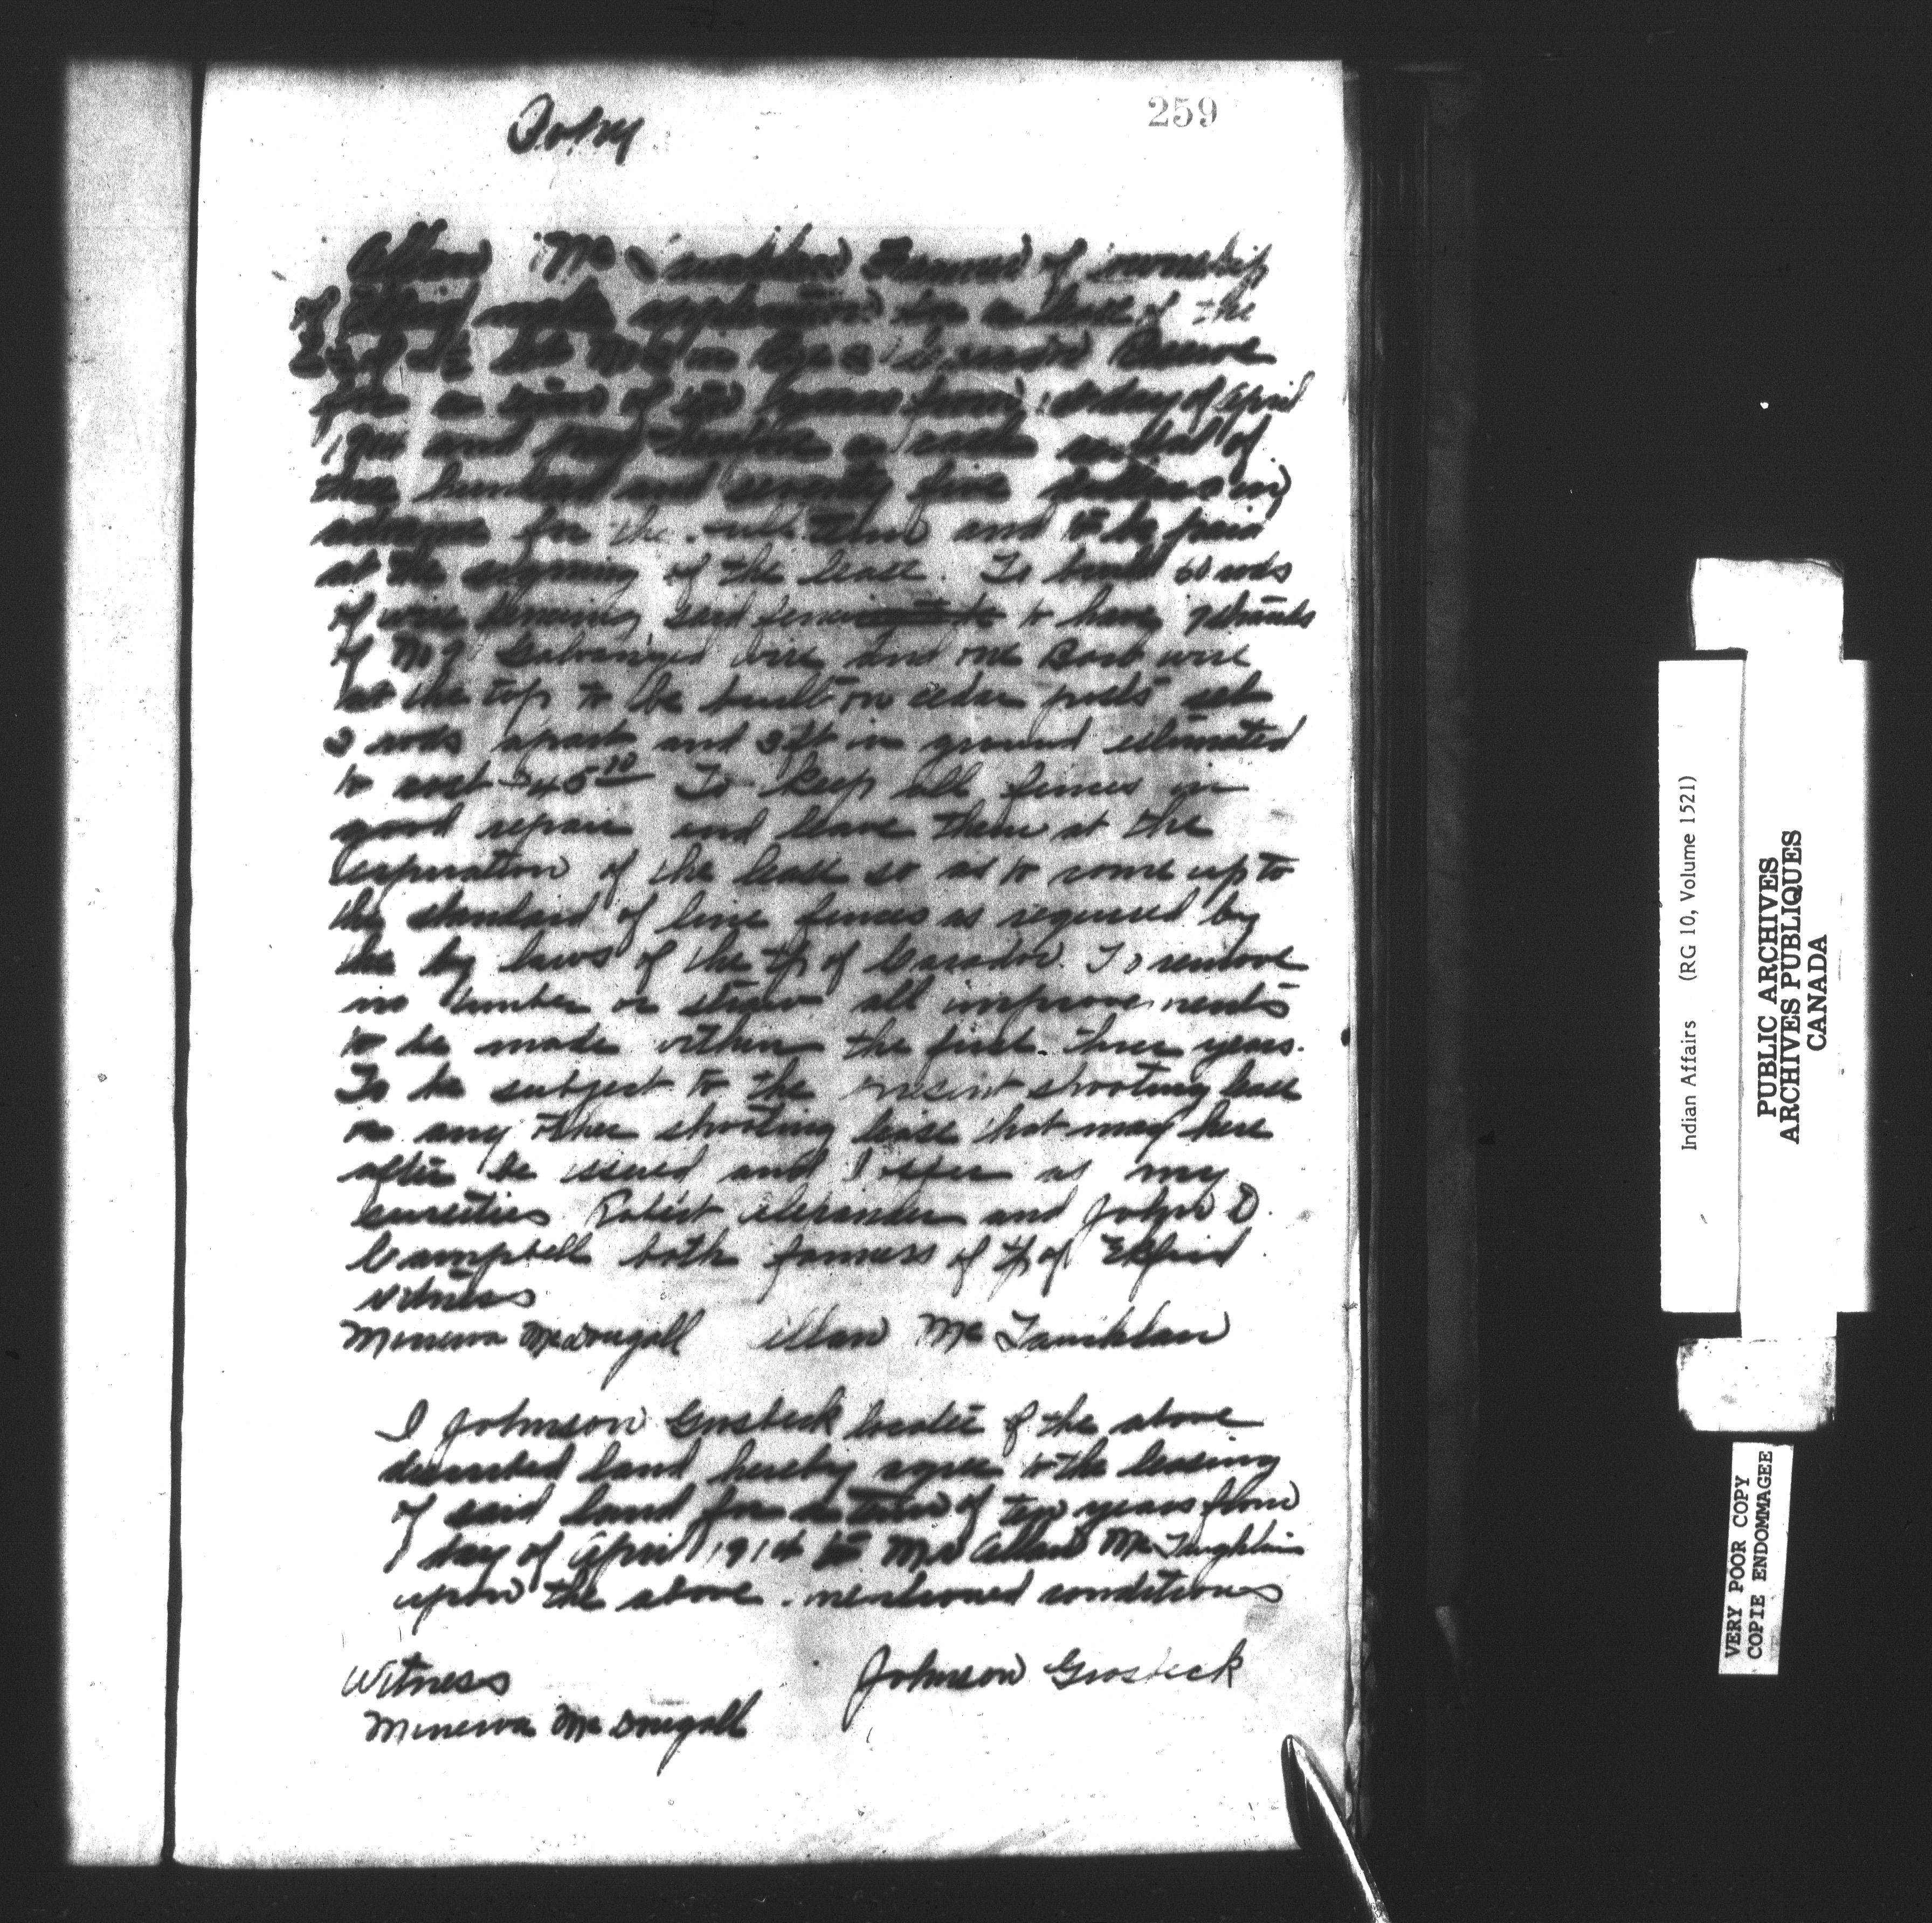 Copy
259
Allan Mc Farmer of township
of make application for a lease of the
Lot No in Rge Caradoc Reserve
for a term of ten years from day of April
1914 and a cash rental of
three hundred and seventy five dollars in
advance for the full term and to be paid
at the signing of the lease. To build 60 rods
of wire fencing said fence to have 7 strands
of No 9 Galvanized wire and one Barb wire
at the top to be built on cedar posts set
2 rods apart and 3 ft in ground estimated
to cost $45 To keep all fences in
good repair and leave them at the
expiration of the lease so as to come up to
the standard of line fences as required by
the by laws of the tp of Caradoc. To remove
no timber or straw all improvements
to be made within the first three years.
To be subject to the present shooting lease
or any other shooting lease that may here
after be issued and I offer as my
sureties Robert Alexander and John D.
Campbell both farmers of tp of Ekfrid
witness
Minerva McDougall Allan Mc
I Johnson Grosbeck locatee of the above
described land hereby agree to the leasing
of said land for a term of ten years from
1 day of April 1914 to Mr Allan Mc
upon the above mentioned conditions
Witness Johnson Grosbeck
Minerva McDougall
Indian Affairs (RG 10, Volume 1521)
PUBLIC ARCHIVES
ARCHIVES PUBLIQUES
CANADA
VERY POOR COPY
COPIE ENDOMMAGEE